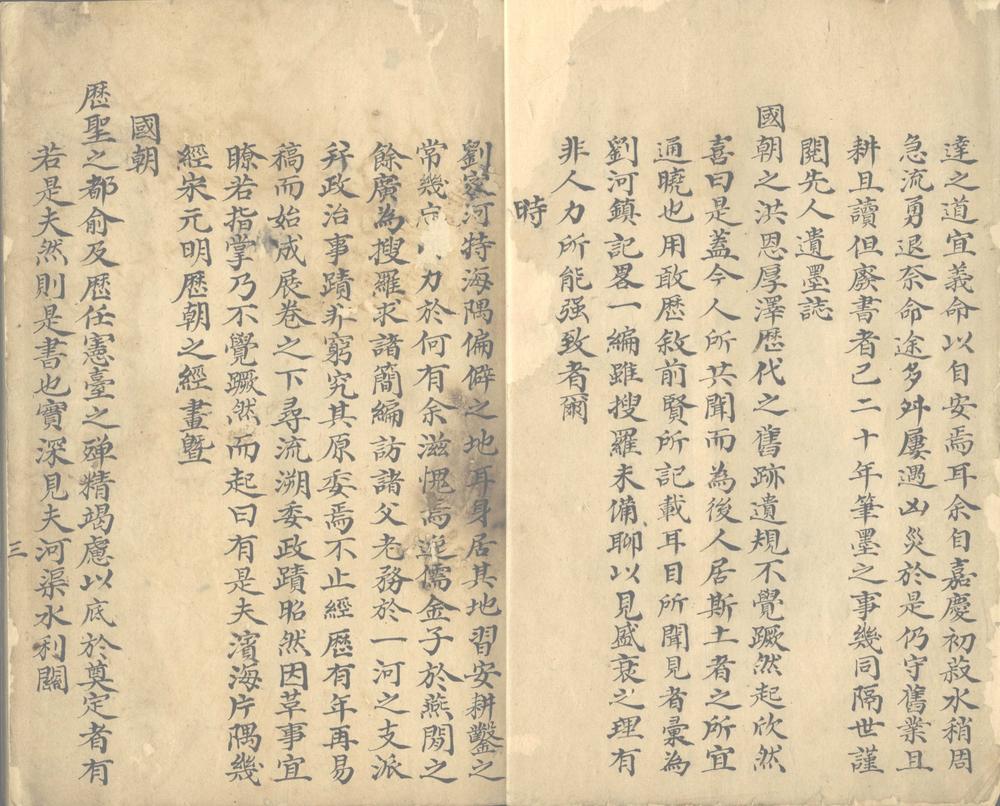 達之道宜義命以自安焉耳余自嘉慶初菽水稍周
急流勇退奈命途多舛屢遇凶災於是仍守舊業且
耕且讀但廢書者已二十年筆墨之事幾同隔世謹
閱先人遺墨誌
國朝之洪恩厚澤歷代之舊跡遺規不覺蹶然起欣然
喜曰是蓋今人所共聞而為後人居斯土者之所宜
通曉也用敢歷敘前賢所記載耳目所聞見者彙為
劉河鎮記畧一編雖搜羅未備聊以見盛衰之理有
非人力所能强致者爾
時
劉家河特海隅偏僻之地耳身居其地習安耕鑿之
常幾忘力於何有余滋愧焉儒金子於燕閒之
餘廣為搜羅求諸簡編訪諸父老務於一河之支派
政治事蹟窮究其原委焉不止經歷有年再易
稿而始成展卷之下尋流溯委政蹟昭然因革事宜
瞭若指掌乃不覺蹶然而起曰有是夫濱海片隅幾
經宋元明歷朝之經畫暨
國朝
歷聖之都俞及歷任憲臺之殫精竭慮以底於奠定者有
若是夫然則是書也實深見夫河渠水利關
三